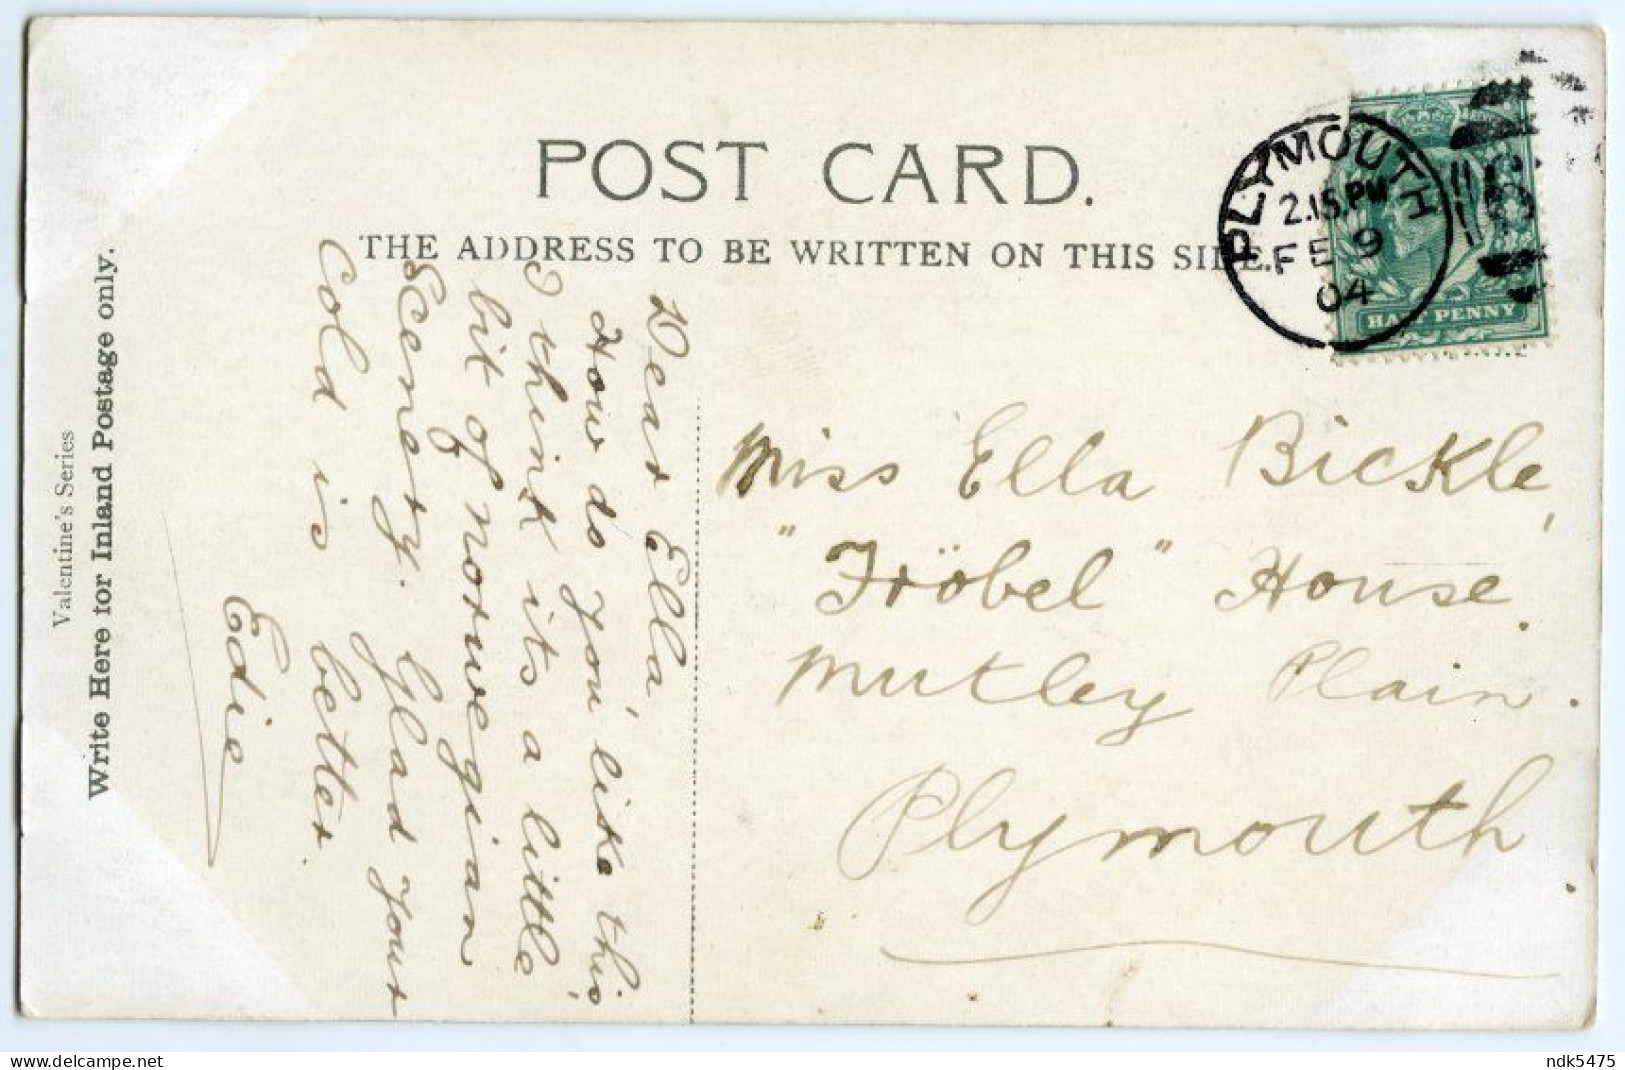 POST CARD.
THE ADDRESS TO BE WRITTEN ON THIS SIDE.
Valentine's Series
Write Here for Inland Postage only.
PLYMOUTH
2.15.PM
FE 9
04
HALF PENNY
Dear Ella,
How do you like this,
I think its a little
bit of norwegian
Scenery. Glad your
Cold is better.
Edie
Miss Ella Bickle,
"Fröbel" House.
Mutley Plain.
Plymouth
delcampe.net
ndk5475